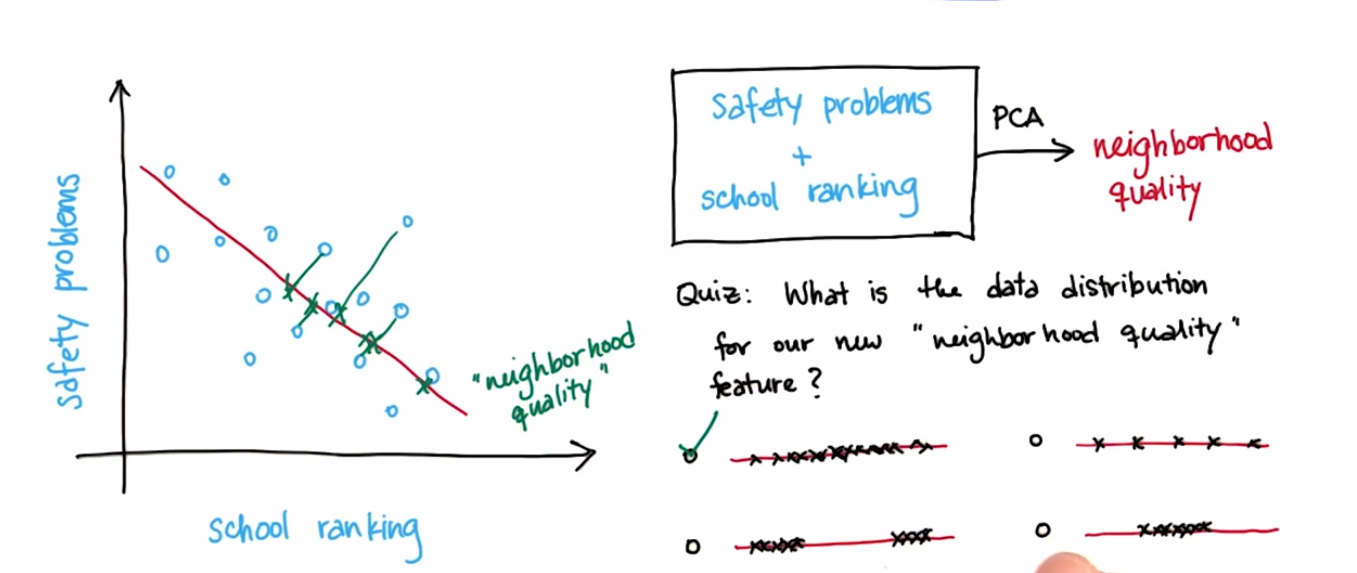 safety problems
school ranking
"neighborhood
quality"
safety problems
+
school ranking
PCA
neighborhood
quality
Quiz: What is the data distribution
for our new "neighborhood quality"
feature?